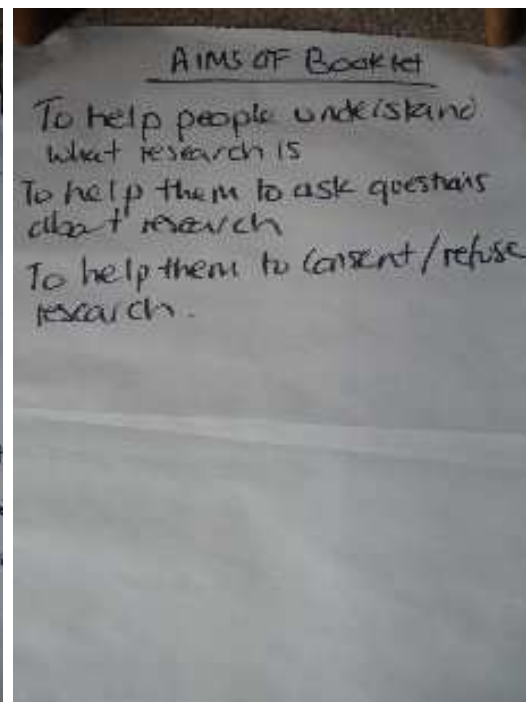 AIMS OF Booklet
To help people understand
what research is
To help them to ask questions
about research
To help them to consent/refuse
research.